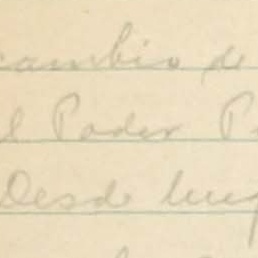 cambio de
el Poder P
Desde lueg